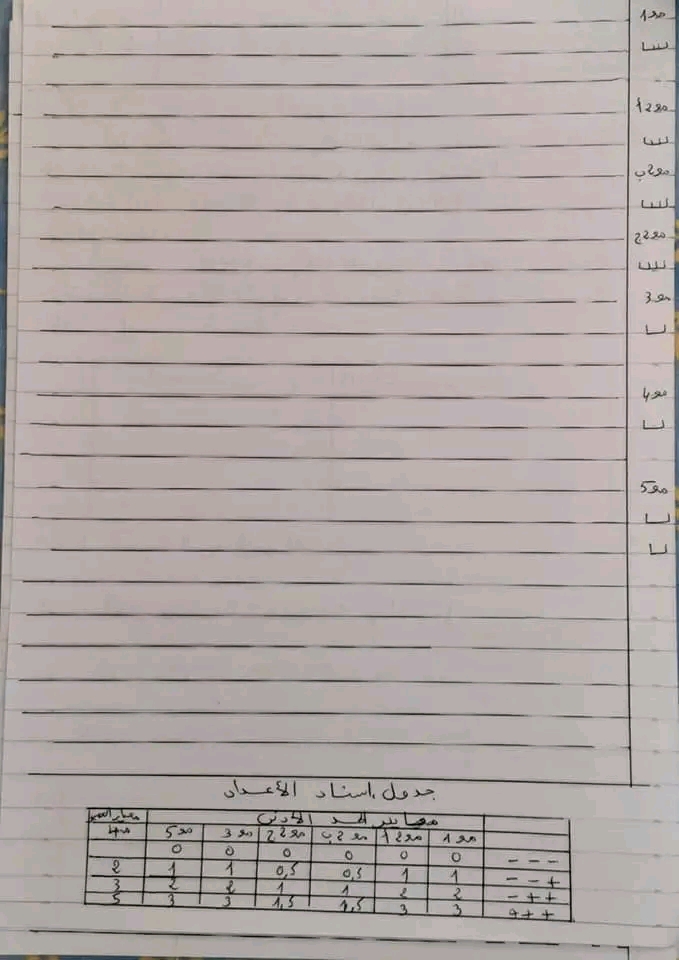 مع1
مع2أ
مع2ب
مع2ج
مع3
مع4
مع5
جدول إسناد الأعداد
معايير الحد الأدنى معيار التميز
مع1 مع2أ مع2ب مع2ج مع3 مع5 مع4
--- 0 0 0 0 0 0
--+ 1 1 0,5 0,5 1 1 2
-++ 2 2 1 1 2 2 3
+++ 3 3 1,5 1,5 3 3 5